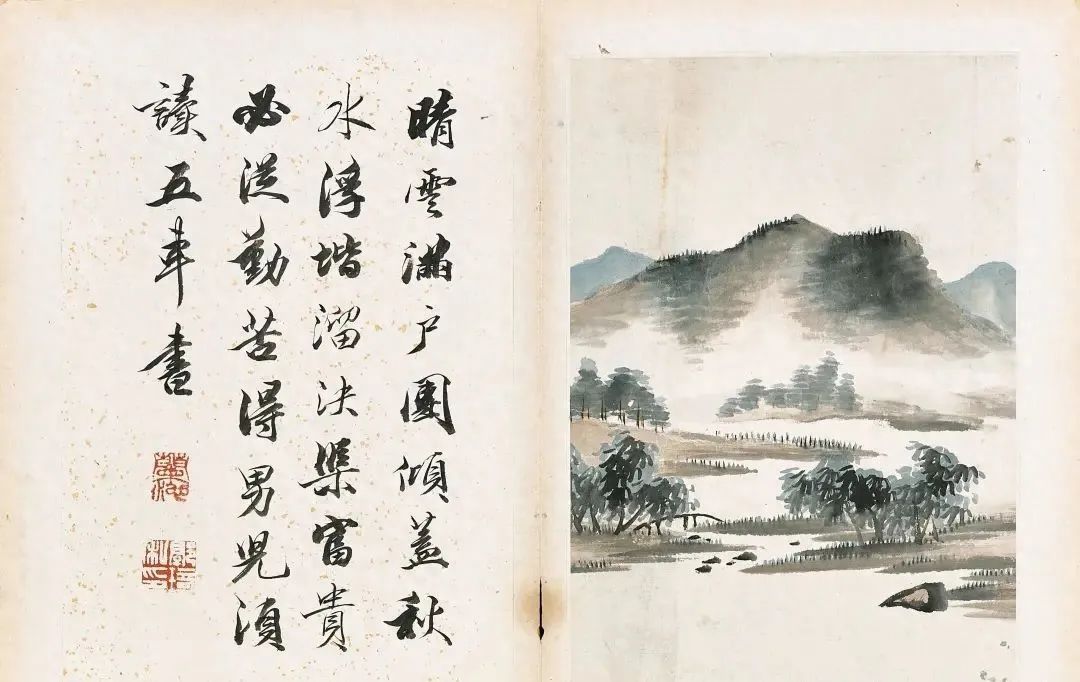 晴雲滿戶團傾蓋秋
水浮堦溜決渠富貴
必從勤苦得男兒須
讀五車書